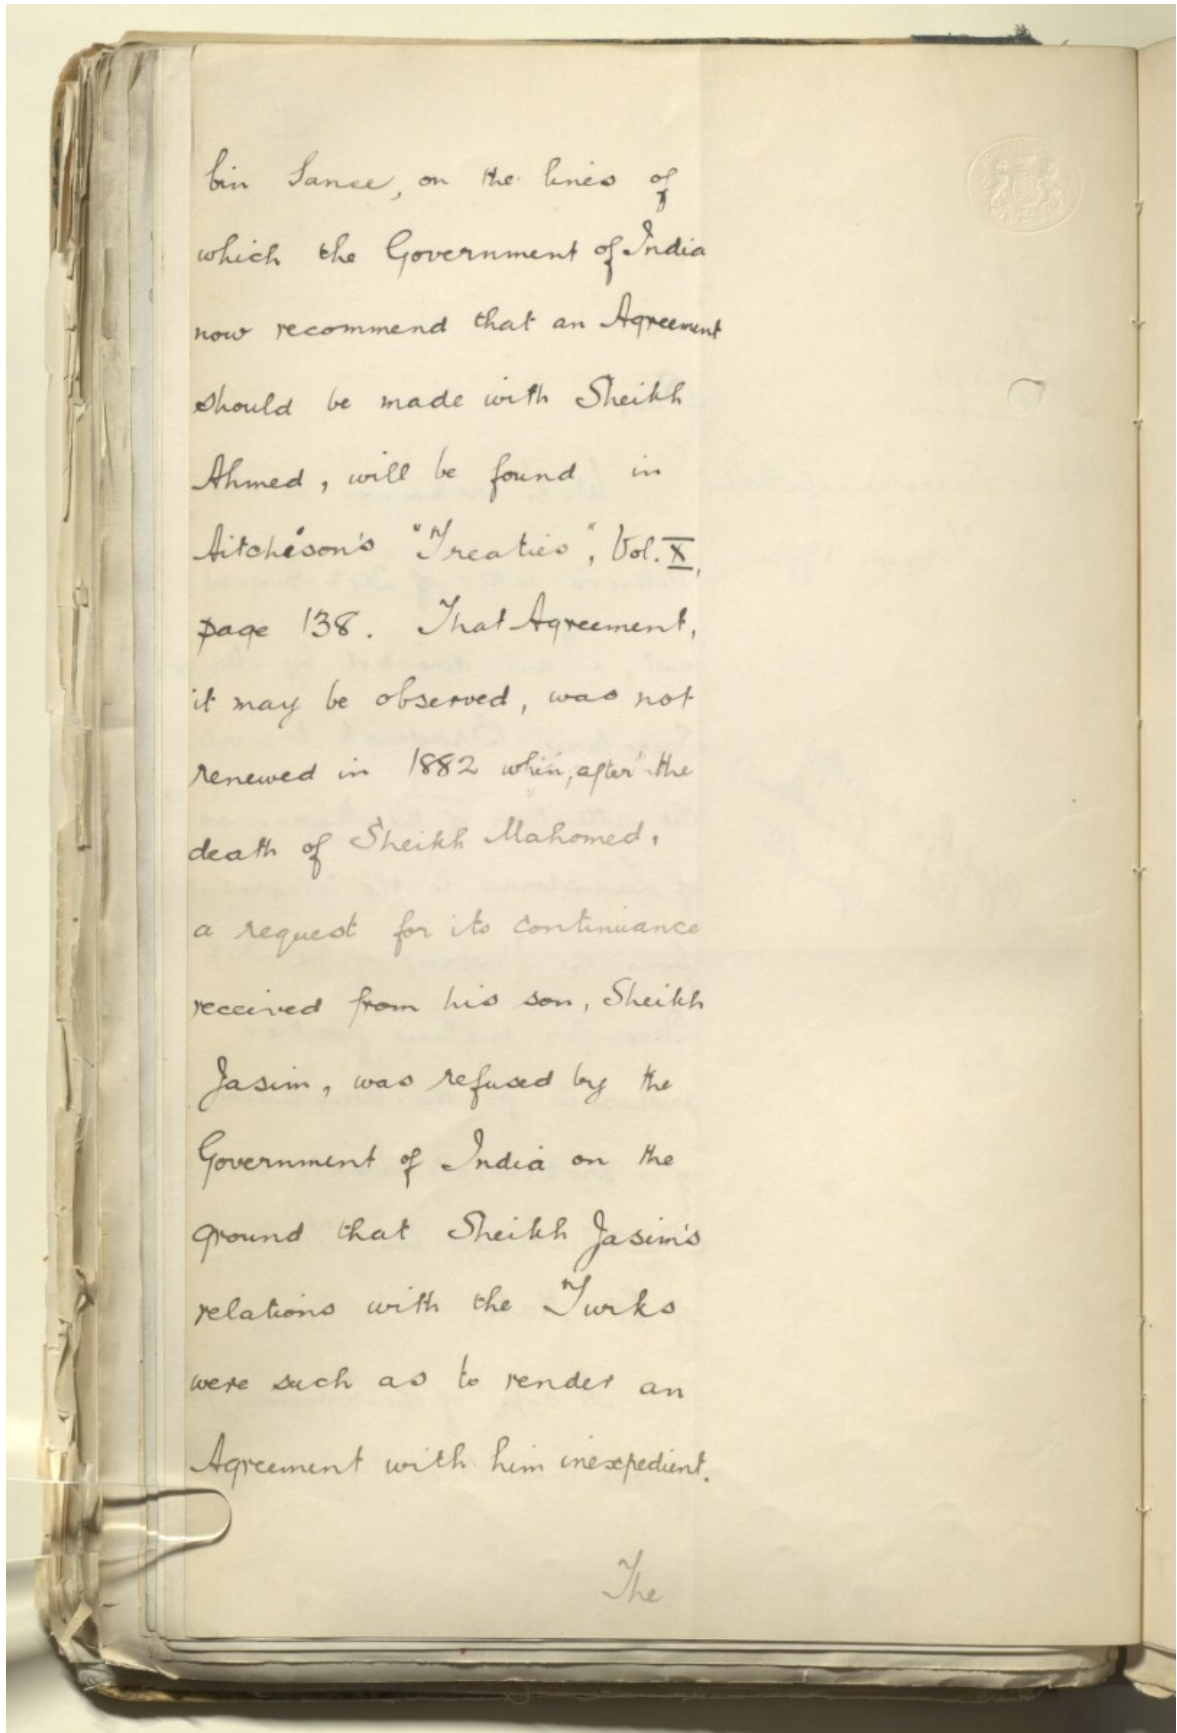 bin Sanee, on the lines of
which the Government of India
now recommend that an Agreement
should be made with Sheikh
Ahmed, will be found in
Aitcheson's "Treaties", Vol. X,
page 138. That Agreement,
it may be observed, was not
renewed in 1882 when, after the
death of Sheikh Mahomed,
a request for its continuance
received from his son, Sheikh
Jasim, was refused by the
Government of India on the
ground that Sheikh Jasim's
relations with the Turks
were such as to render an
Agreement with him inexpedient.
The